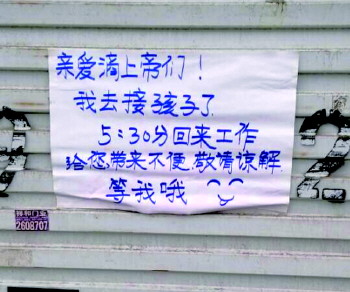 亲爱滴上帝们！
我去接孩子了
5:30分回来工作
给您带来不便，敬请谅解
等我哦
2
2608707